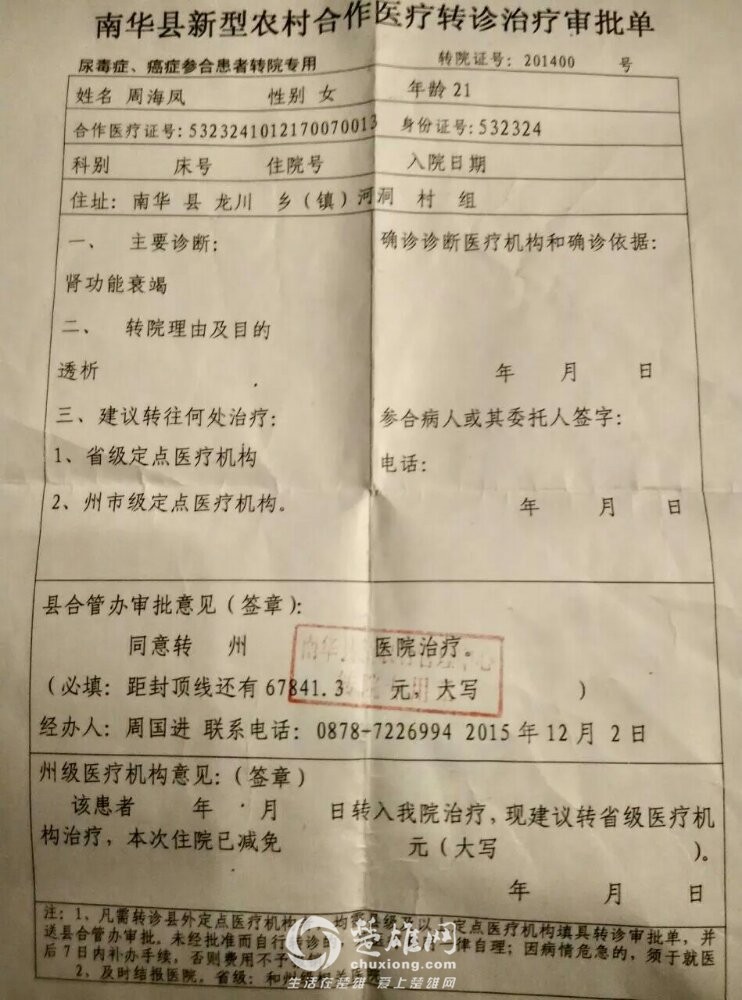 南华县新型农村合作医疗转诊治疗审批单
尿毒症、癌症参合患者转院专用 转院证号：201400 号
姓名 周海凤 性别 女 年龄 21
合作医疗证号：5323241012170070013 身份证号：532324
科别 床号 住院号 入院日期
住址：南华 县 龙川 乡（镇）河洞 村 组
一、 主要诊断：
肾功能衰竭
二、 转院理由及目的
透析
三、建议转往何处治疗：
1、省级定点医疗机构
2、州市级定点医疗机构。
确诊诊断医疗机构和确诊依据：
年 月 日
参合病人或其委托人签字：
电话：
年 月 日
县合管办审批意见（签章）：
同意转 州 医院治疗。
（必填：距封顶线还有 67841.3 元，大写 ）
经办人：周国进 联系电话：0878-7226994 2015 年 12 月 2 日
州级医疗机构意见：（签章）
该患者 年 月 日转入我院治疗，现建议转省级医疗机
构治疗，本次住院已减免 元（大写 ）。
年 月 日
注：1、凡需转诊县外定点医疗机构 均 级及以 定点医疗机构填具转诊审批单，并
送县合管办审批。未经批准而自行转诊的 律自理；因病情危急的，须于就医
后 7 日内补办手续，否则费用不予
2、及时结报医院，省级：和州级相关医院
楚雄网
chuxiong.com
生活在楚雄 爱上楚雄网